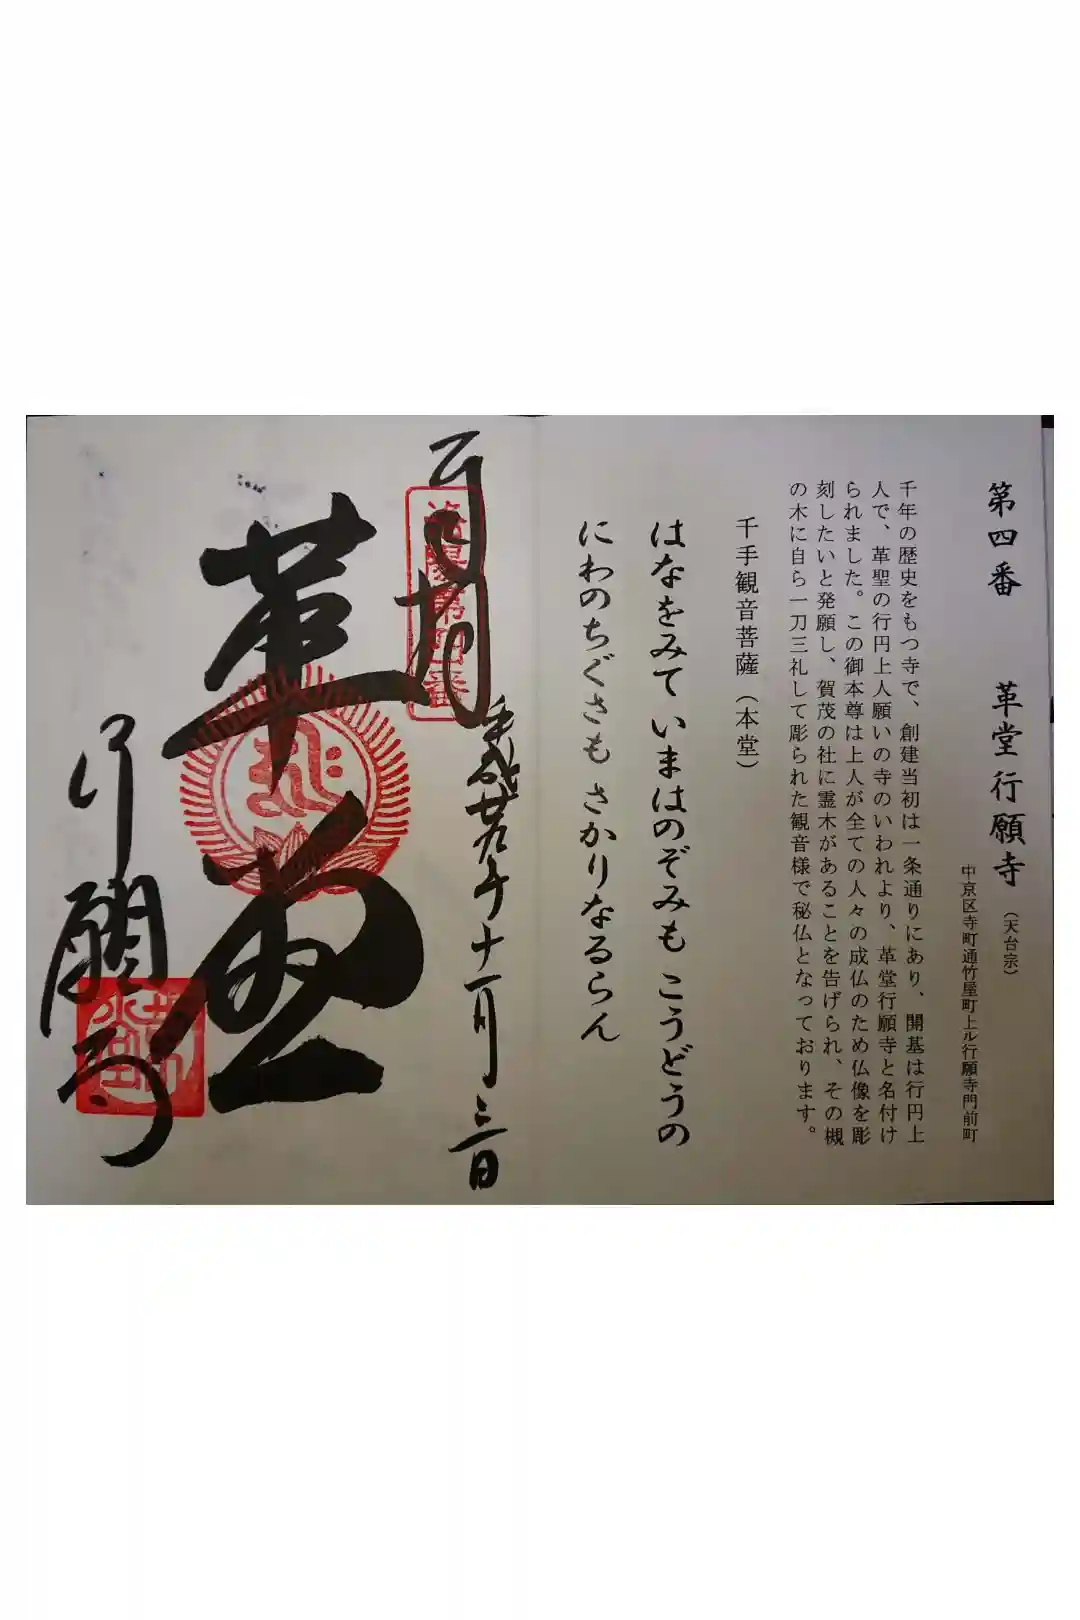 第四番 革堂行願寺(天台宗)
中京区寺町通竹屋町上ル行願寺門前町
千年の歴史をもつ寺で、創建当初は一条通りにあり、開基は行円上
人で、革聖の行円上人願いの寺のいわれより、革堂行願寺と名付け
られました。この御本尊は上人が全ての人々の成仏のため仏像を彫
刻したいと発願し、賀茂の社に霊木があることを告げられ、その槻
の木に自ら一刀三礼して彫られた観音様で秘仏となっております。
千手観音菩薩(本堂)
はなをみて いまはのぞみも こうどうの
にわのちぐさも さかりなるらん
奉拝
洛陽第四番
平成廿九年十一月三日
革堂
行願寺